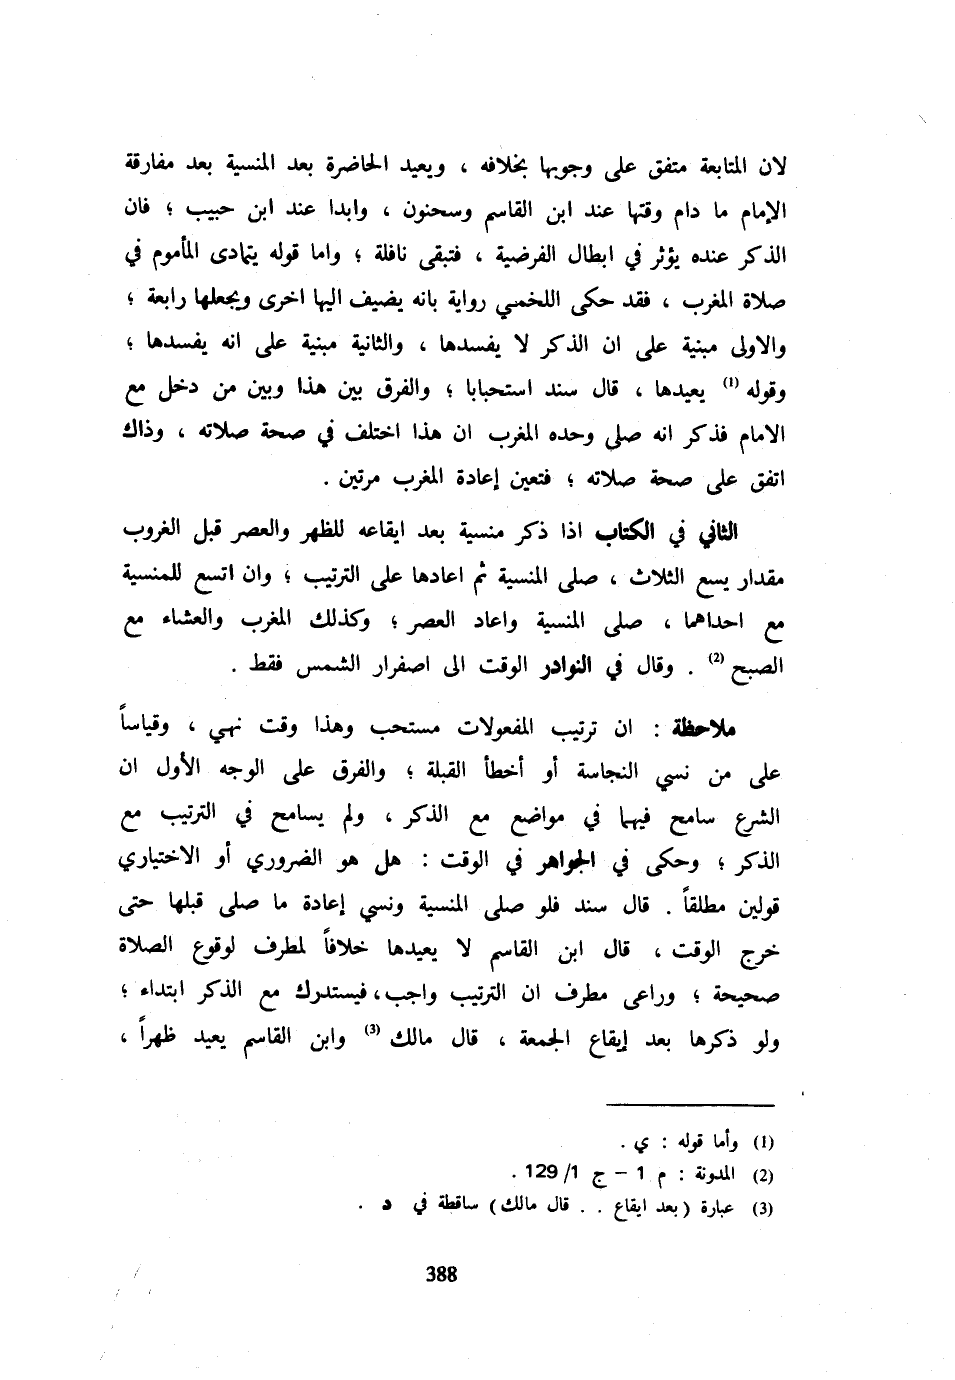 لان المتابعة متفق على وجوبها بخلافه ، ويعيد الحاضرة بعد المنسية بعد مفارقة
الإمام ما دام وقتها عند ابن القاسم وسحنون ، وابدا عند ابن حبيب ؛ فان
الذكر عنده يؤثر في ابطال الفرضية ، فتبقى نافلة ؛ واما قوله يتمادى المأموم في
صلاة المغرب ، فقد حكى اللخمي رواية بانه يضيف اليها اخرى ويجعلها رابعة ؛
والاولى مبنية على ان الذكر لا يفسدها ، والثانية مبنية على انه يفسدها ؛
وقوله (1) يعيدها ، قال سند استحبابا ؛ والفرق بين هذا وبين من دخل مع
الامام فذكر انه صلى وحده المغرب ان هذا اختلف في صحة صلاته ، وذاك
اتفق على صحة صلاته ؛ فتعين إعادة المغرب مرتين .
الثاني في الكتاب اذا ذكر منسية بعد ايقاعه للظهر والعصر قبل الغروب
مقدار يسع الثلاث ، صلى المنسية ثم اعادها على الترتيب ؛ وان اتسع للمنسية
مع احداهما ، صلى المنسية واعاد العصر ؛ وكذلك المغرب والعشاء مع
الصبح (2) . وقال في النوادر الوقت الى اصفرار الشمس فقط .
ملاحظة : ان ترتيب المفعولات مستحب وهذا وقت نهي ، وقياساً
على من نسي النجاسة أو أخطأ القبلة ؛ والفرق على الوجه الأول ان
الشرع سامح فيهما في مواضع مع الذكر ، ولم يسامح في الترتيب مع
الذكر ؛ وحكى في الجواهر في الوقت : هل هو الضروري أو الاختياري
قولين مطلقاً . قال سند فلو صلى المنسية ونسي إعادة ما صلى قبلها حتى
خرج الوقت ، قال ابن القاسم لا يعيدها خلافاً لمطرف لوقوع الصلاة
صحيحة ؛ وراعى مطرف ان الترتيب واجب ، فيستدرك مع الذكر ابتداء ؛
ولو ذكرها بعد إيقاع الجمعة ، قال مالك (3) وابن القاسم يعيد ظهراً ،
(1) وأما قوله : ي .
(2) المدونة : م 1 – ج 1/ 129 .
(3) عبارة (بعد ايقاع . . قال مالك) ساقطة في د .
388